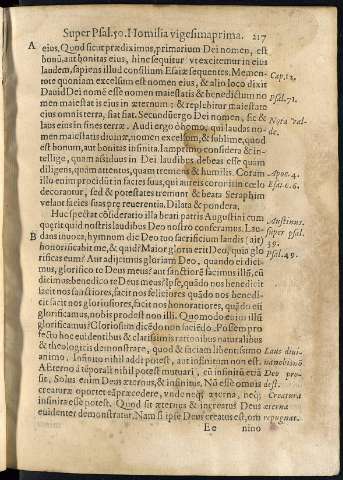 Super Psal. 50. Homilia vigesimaprima. 217
A eius. Quod sicut prædiximus, primarium Dei nomen, est
bonũ, aut bonitas eius, hinc sequitur vt excitemur in eius
laudem, sapiens illud consilium Esaiæ sequentes. Memen-
tote quoniam excelsum est nomen eius, & alio loco dixit Cap. 12.
Dauid Dei nomẽ esse nomen maiestatis & benedictum no Psal. 71.
men maiestatis eius in æternum: & replebitur maiestate
eius omnis terra, fiat fiat. Secundũ ergo Dei nomen, sic & Nota val-
laus eius in fines terræ. Audi ergo ô homo, qui laudas no- de.
men maiestatis diuinæ, nomen excelsum, & sublime, quod
est bonum, aut bonitas infinita. Iam primo considera & in-
tellige, quam assiduus in Dei laudibus debeas esse quàm
diligens, quàm attentus, quam tremens & humilis. Coram Apoc. 4.
illo enim procidũt in facies suas, qui aureis coronis in cœlo Esa. c. 6.
decorantur, sed & potestates tremunt & beata Seraphim
velant facies suas præ reuerentia. Dilata & pondera.
Huc spectat cõsideratio illa beati patris Augustini cum Austinus.
quærit quid nostris laudibus Deo nostro conferamus. Lau- super psal.
B dans inuoca, hymnum dic Deo tuo sacrificium laudis (ait) 39.
honorificabit me, & quid? Maior gloria erit Deo, quia glo Psal. 49.
rificas eum? Aut adijcimus gloriam Deo, quando ei dici-
mus, glorifico te Deus meus? aut sanctiorẽ facimus illũ, cũ
dicimus benedico te Deus meus? Ipse, quãdo nos benedicit
facit nos sanctiores, facit nos feliciores quãdo nos benedi-
cit facit nos gloriosiores, facit nos honoratiores, quãdo eũ
glorificamus, nobis prodest non illi. Quomodo enim illũ
glorificamus? Gloriosum dicẽdo non faciẽdo. Possem pro
fecto hoc euidentibus & clarissimis rationibus naturalibus
& theologicis demonstrare, quod & faciam libentissimo Laus diui-
animo. Infinito nihil addi potest, aut infinitum non est. na nobis nõ
A æterno à tẽporali nihil potest mutuari, cũ infinitũ etiã Deo pro-
sit. Solus enim Deus æternus, & infinitus. Nũ esse omnis dest.
creaturæ oportet eã præcedere, vnde neq; æterna, neq; Creatura
infinita esse potest. Quod sit æternus & increatus Deus æterna
euidenter demonstratur. Nam si ipse Deus creatus est, om repugnat.
Ee nino